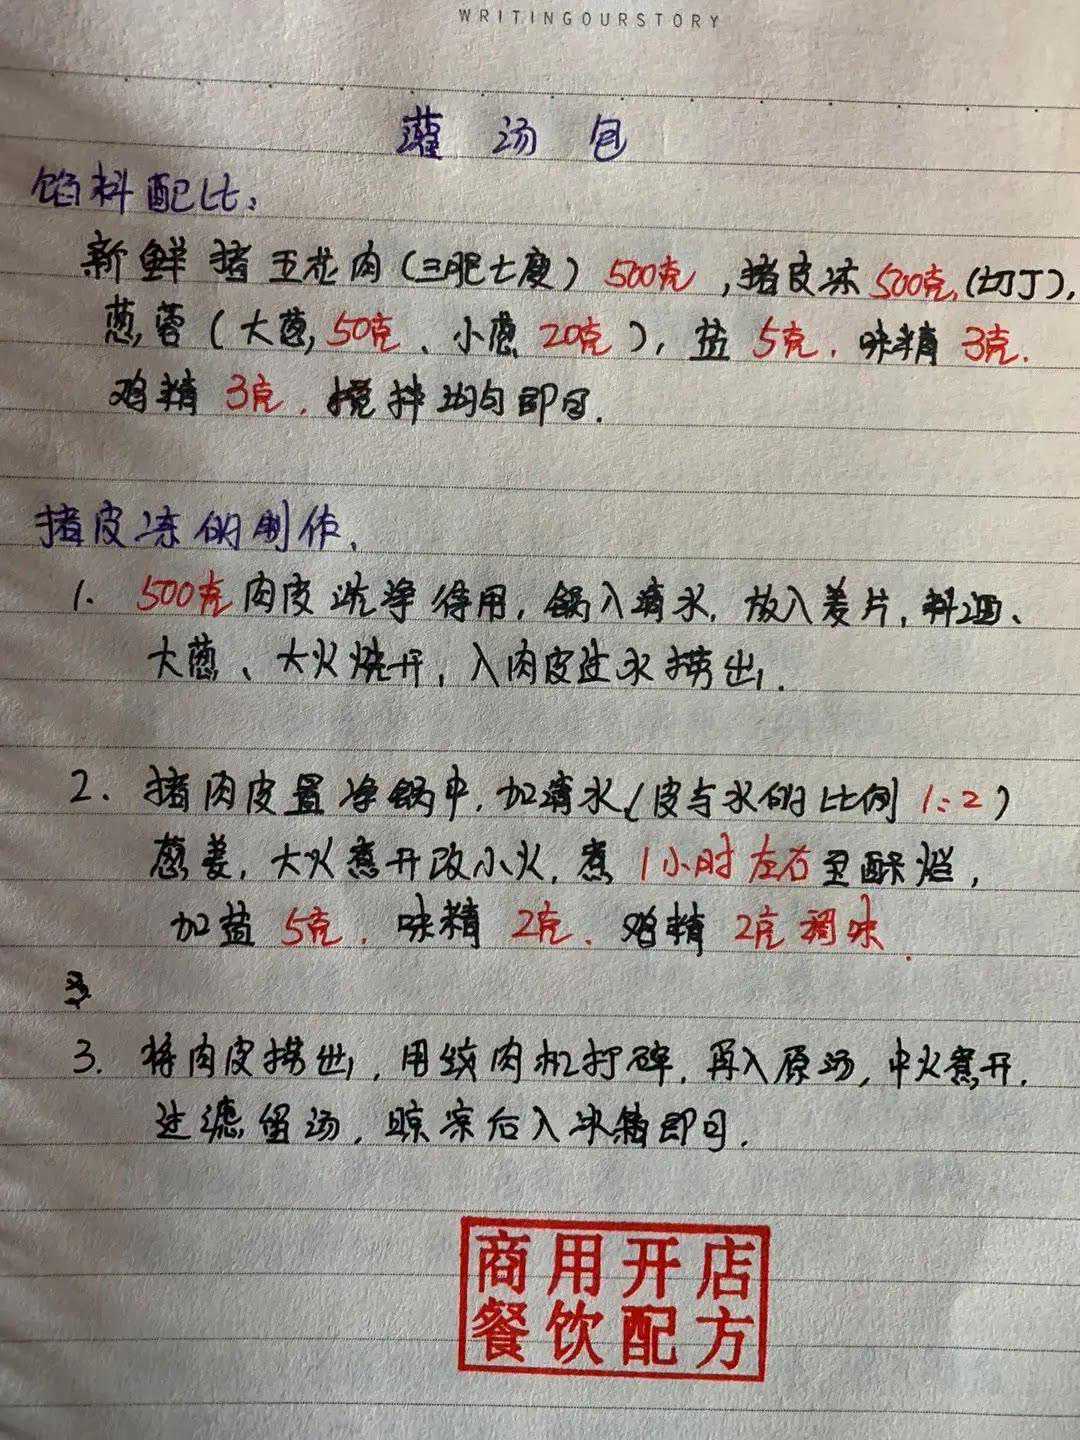 WRITINGOURSTORY
灌汤包
馅料配比:
新鲜猪五花肉(三肥七瘦)500克,猪皮冻500克,(切丁),
葱蓉(大葱,50克、小葱20克),盐5克.味精3克.
鸡精3克.搅拌均匀即可.
猪皮冻的制作.
1. 500克肉皮洗净待用,锅入清水.放入姜片,料酒、
大葱、大火烧开,入肉皮过水捞出.
2. 猪肉皮置净锅中.加清水(皮与水的比例1:2)
葱姜,大火煮开改小火.煮1小时左右至酥烂,
加盐5克.味精2克.鸡精2克调味.
3. 将肉皮捞出,用绞肉机打碎.再入原汤,中火煮开.
过滤留汤,晾凉后入冰箱即可.
商用开店
餐饮配方